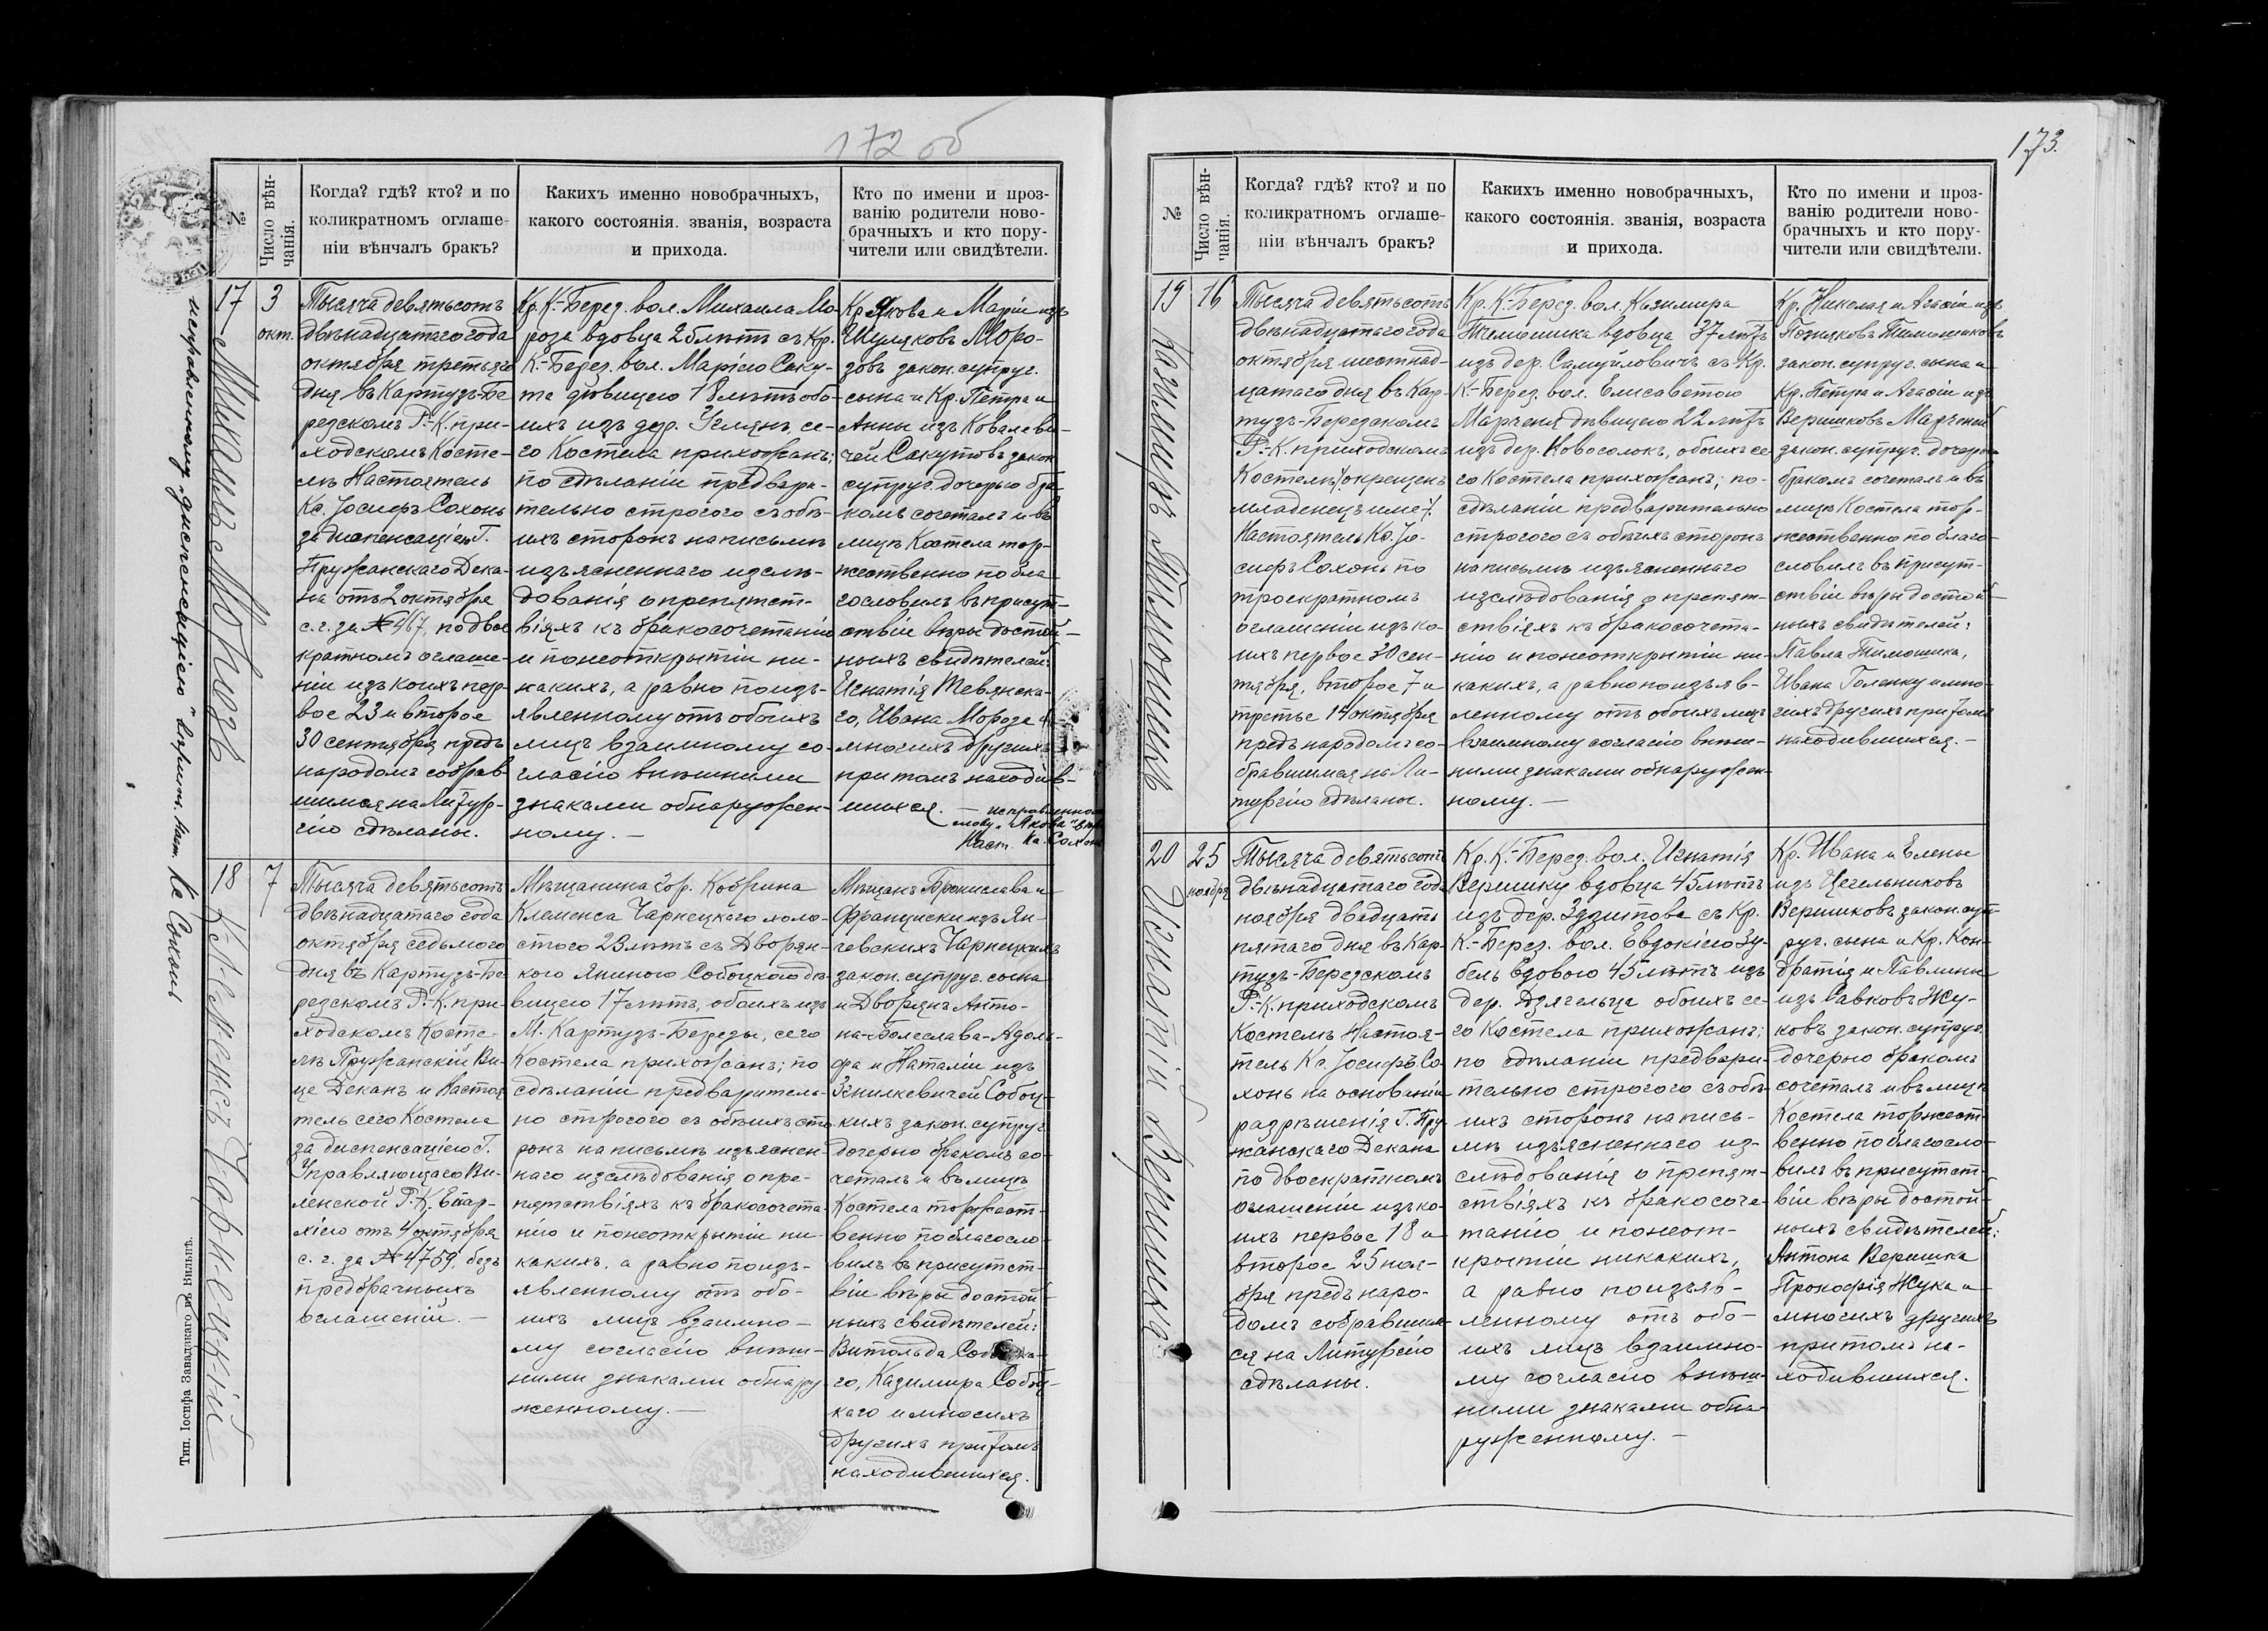 172 об
№
Число вѣн-
чанія.
Когда? гдѣ? кто? и по
коликратномъ оглаше-
ніи вѣнчалъ бракъ?
Какихъ именно новобрачныхъ,
какого состоянія. званія, возраста
и прихода.
Кто по имени и проз-
ванію родители ново-
брачныхъ и кто пору-
чители или свидѣтели.
17
3
окт.
Михаилъ Морозъ
Тысяча девятьсотъ
двѣнадцатаго года
октября третьяго
дня въ Картузъ-Бе
резскомъ Р.-К. при-
ходскомъ Косте-
лѣ Настоятель
Кс. Іосифъ Сохонь
за диспенсаціею Г.
Пружанскаго Дека-
на отъ 2 октября
с. г. за № 467, по двое
кратномъ оглаше-
ніи изъ коихъ пер-
вое 23 и второе
30 сентября предъ
народомъ собрав-
шимся на Литур-
гію сдѣланы.
Кр. К.-Берез. вол. Михаила Мо-
роза вдовца 25 лѣтъ съ Кр.
К.-Берез. вол. Маріею Саку-
та дѣвицею 18 лѣтъ обо-
ихъ изъ дер. Углянъ, се-
го Костела прихожанъ;
по сдѣланіи предвари-
тельно строгого съ обѣ-
ихъ сторонъ на письмѣ
изъясненнаго изслѣ-
дованія о препятст-
віяхъ къ бракосочетанію
и понеоткрытіи ни-
какихъ, а равно по изъ-
явленному отъ обоихъ
лицъ взаимному со-
гласію внѣшними
знаками обнаружен-
ному. —
Кр. Якова и Маріи изъ
Шуляковъ Моро-
зовъ закон. супруг.
сына и Кр. Петра и
Анны изъ Ковалеви-
чей Сакутовъ закон
супруг. дочерью бра-
комъ сочеталъ и въ
лицѣ Костела тор-
жественно побла-
гословилъ въ присут-
ствіи вѣры достой-
ныхъ свидѣтелей:
Игнатія Тевянска-
го, Ивана Мороза и
многихъ другихъ
при томъ находив-
шихся. —
исправленному
слову „Якова" вѣр.
Наст. Кс. Сохонь
исправленному „диспенсаціею" вѣрить. Наст. Кс. Сохонь
18
7
Клеменсъ Чарнецкій
Тысяча девятьсотъ
двѣнадцатаго года
октября седьмого
дня въ Картузъ-Бе
резскомъ Р.-К. при-
ходскомъ Косте-
лѣ Пружанскій Ви-
це Деканъ и Настоя
тель сего Костела
за диспенсаціею Г.
Управляющаго Ви-
ленской Р.-К. Епар-
хіею отъ 4 октября
с. г. за № 4759, безъ
предбрачныхъ
оглашеній. —
Мѣщанина гор. Кобрина
Клеменса Чарнецкаго холо-
стого 23 лѣтъ съ Дворян-
кою Яниною Собоцкою дѣ-
вицею 17 лѣтъ, обоихъ изъ
М. Картузъ-Березы, сего
Костела прихожанъ; по
сдѣланіи предваритель-
но строгого съ обѣихъ сто-
ронъ на письмѣ изъяснен-
наго изслѣдованія о пре-
пятствіяхъ къ бракосочета-
нію и понеоткрытіи ни-
какихъ, а равно по изъ-
явленному отъ обо-
ихъ лицъ взаимно-
му согласію внѣш-
ними знаками обнару-
женному. —
Мѣщанъ Бронислава и
Франциски изъ Ян-
чевскихъ Чарнецкихъ
закон. супруг. сына
и Дворянъ Анто-
на-Болеслава-Адоль-
фа и Наталіи изъ
Собоц-
кихъ закон. супруг.
дочерью бракомъ со-
четалъ и въ лицѣ
Костела торжест-
венно поблагосло-
вилъ въ присутст-
віи вѣры достой-
ныхъ свидѣтелей:
Витольда Собоцка-
го, Казимира Собоц-
каго и многихъ
другихъ при томъ
находившихся.
Тип. Іосифа Завадзкаго въ Вильнѣ.
173.
№
Число вѣн-
чанія.
Когда? гдѣ? кто? и по
коликратномъ оглаше-
ніи вѣнчалъ бракъ?
Какихъ именно новобрачныхъ,
какого состоянія. званія, возраста
и прихода.
Кто по имени и проз-
ванію родители ново-
брачныхъ и кто пору-
чители или свидѣтели.
19
16
Казимиръ Тимошикъ
Тысяча девятьсотъ
двѣнадцатаго года
октября шестнад-
цатаго дня въ Кар-
тузъ-Березскомъ
Р.-К. приходскомъ
Костелѣ /: окрещенъ
младенецъ име :/.
Настоятель Кс. Іо-
сифъ Сохонь по
троекратномъ
оглашеніи изъ ко-
ихъ первое 30 сен-
тября, второе 7 и
третье 14 октября
предъ народомъ со-
бравшимся на Ли-
тургію сдѣланы.
Кр. К.-Берез. вол. Казимира
Тимошика вдовца 37 лѣтъ
изъ дер. Самуйловичъ съ Кр.
К.-Берез. вол. Елисаветою
Марченя дѣвицею 22 лѣтъ
изъ дер. Новоселокъ, обоихъ се
го Костела прихожанъ; по-
сдѣланіи предварительно
строгого съ обѣихъ сторонъ
на письмѣ изъясненнаго
изслѣдованія о препят-
ствіяхъ къ бракосочета-
нію и понеоткрытіи ни-
какихъ, а равно по изъяв-
ленному отъ обоихъ лицъ
взаимному согласію внѣш-
ними знаками обнаружен-
ному. —
Кр. Николая и Агафіи изъ
Тимошиковъ
закон. супруг. сына и
Кр. Петра и Агафіи изъ
Вершковъ Марченей
закон. супруг. дочерью
бракомъ сочеталъ и въ
лицѣ Костела тор-
жественно поблаго-
словилъ въ присут-
ствіи вѣры достой-
ныхъ свидѣтелей:
Павла Тимошика,
Ивана Голенку и мно-
гихъ другихъ при томъ
находившихся. —
20
25
ноября
Игнатій Вершика
Тысяча девятьсотъ
двѣнадцатаго года
ноября двадцать
пятаго дня въ Кар-
тузъ-Березскомъ
Р.-К. приходскомъ
Костелѣ Настоя-
тель Кс. Іосифъ Со
хонь на основаніи
разрѣшенія Г. Пру-
жанскаго Декана
по двоекратномъ
оглашеніи изъ ко-
ихъ первое 18 и
второе 25 ноя-
бря предъ наро-
домъ собравшим-
ся на Литургію
сдѣланы.
Кр. К.-Берез. вол. Игнатія
Вершику вдовца 45 лѣтъ
изъ дер. Здзитова съ Кр.
К.-Берез. вол. Евдокіею Зу-
бель вдовою 45 лѣтъ изъ
дер. Дзягельца обоихъ се-
го Костела прихожанъ;
по сдѣланіи предвари-
тельно строгого съ обѣ-
ихъ сторонъ на пись-
мѣ изъясненнаго из-
слѣдованія о препят-
ствіяхъ къ бракосоче-
танію и понеот-
крытіи никакихъ,
а равно по изъяв-
ленному отъ обо-
ихъ лицъ взаимно-
му согласію внѣш-
ними знаками обна-
руженному. —
Кр. Ивана и Елены
изъ Цегельниковъ
Вершиковъ закон. суп-
руг. сына и Кр. Кон-
дратія и Павлины
изъ Савковъ Жу-
ковъ закон. супруг.
дочерью бракомъ
сочеталъ и въ лицѣ
Костела торжест-
венно поблагосло-
вилъ въ присутст-
віи вѣры достой-
ныхъ свидѣтелей:
Антона Вершика
Прокофія Жука и
многихъ другихъ
при томъ на-
ходившихся.